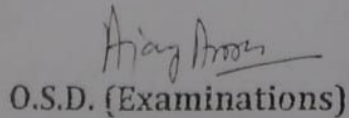 Ajay Arora
O.S.D. (Examinations)